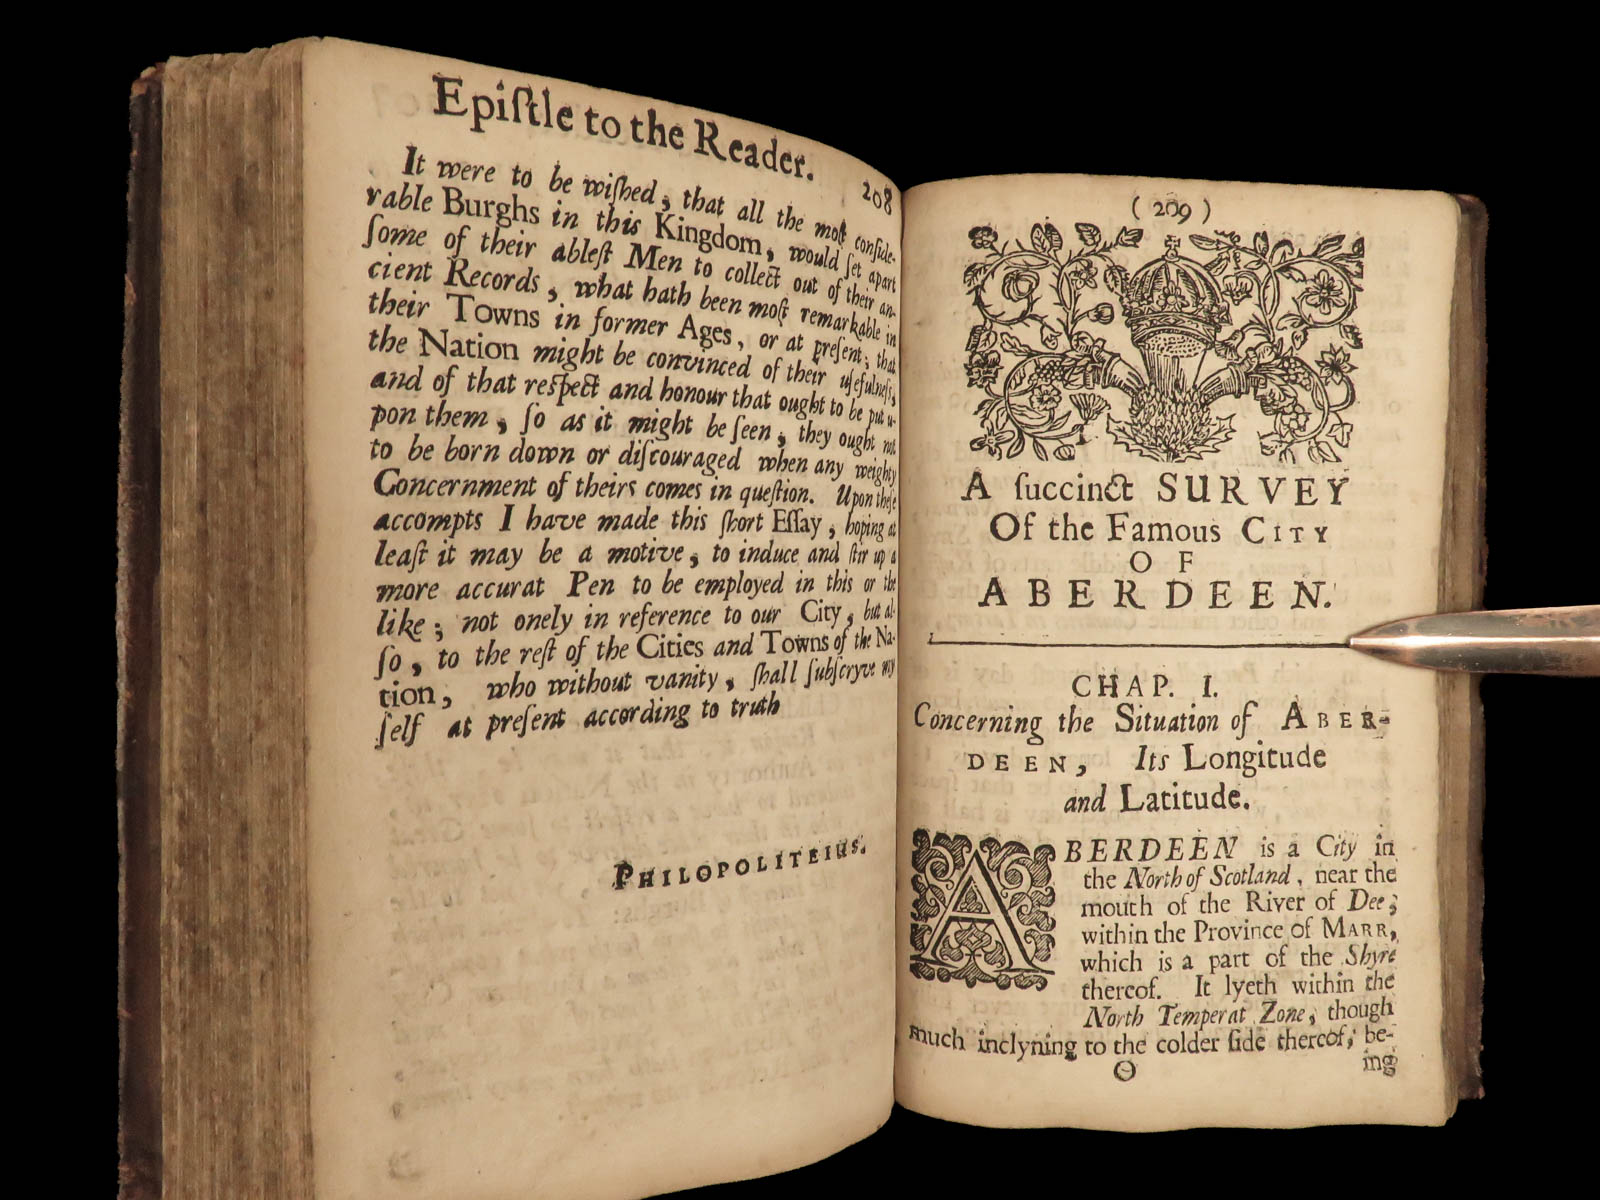 Epiſtle to the Reader.
208
It were to be wiſhed, that all the moſt conſide-
rable Burghs in this Kingdom, would ſet apart
ſome of their ableſt Men to collect out of their an-
cient Records, what hath been moſt remarkable in
their Towns in former Ages, or at preſent; that
the Nation might be convinced of their uſefulneſs,
and of that reſpect and honour that ought to be put u-
pon them, ſo as it might be ſeen, they ought not
to be born down or diſcouraged when any weighty
Concernment of theirs comes in queſtion. Upon theſe
accompts I have made this ſhort Eſſay, hoping at
leaſt it may be a motive, to induce and ſtir up a
more accurat Pen to be employed in this or the
like; not onely in reference to our City, but al-
ſo, to the reſt of the Cities and Towns of the Na-
tion, who without vanity, ſhall ſubſcryve my
ſelf at preſent according to truth
PHILOPOLITEIUS.
( 209 )
A ſuccinct SURVEY
Of the Famous CITY
OF
ABERDEEN.
CHAP. I.
Concerning the Situation of ABER-
DEEN, Its Longitude
and Latitude.
ABERDEEN is a City in
the North of Scotland, near the
mouth of the River of Dee;
within the Province of MARR,
which is a part of the Shyre
thereof. It lyeth within the
North Temperat Zone, though
much inclyning to the colder ſide thereof; be-
Θ
ing